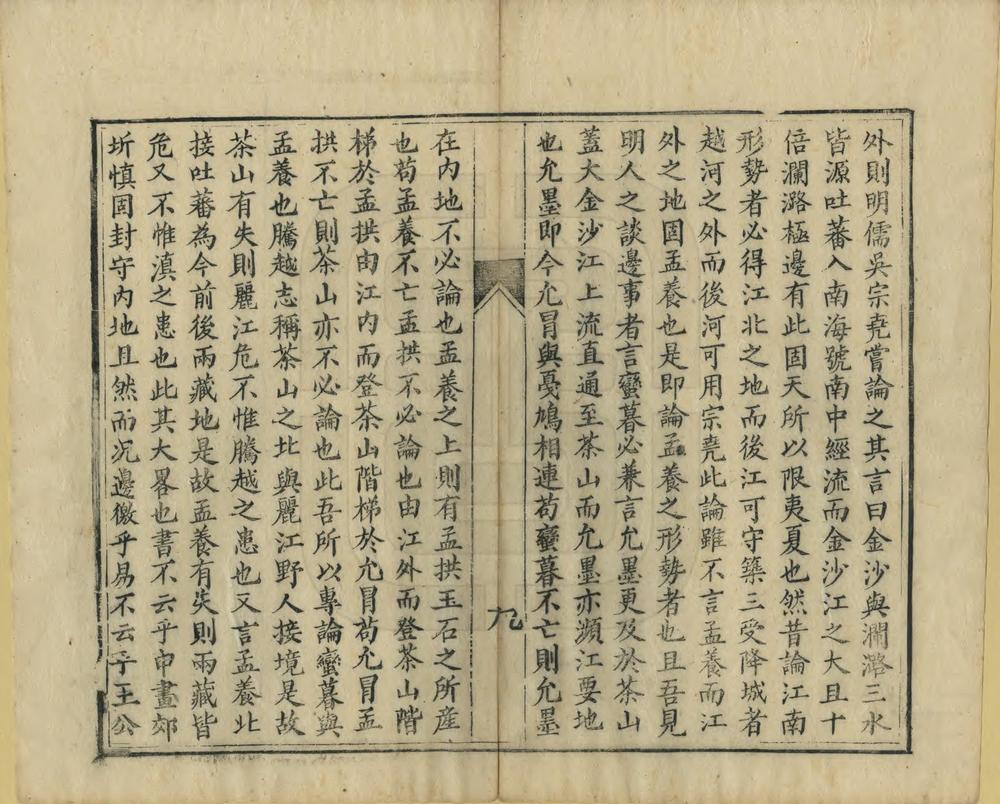 外則明儒吳宗堯嘗論之其言曰金沙與瀾潞三水
皆源吐蕃入南海號南中經流而金沙江之大且十
倍瀾潞極邊有此固天所以限夷夏也然昔論江南
形勢者必得江北之地而後江可守築三受降城者
越河之外而後河可用宗堯此論雖不言孟養而江
外之地固孟養也是即論孟養之形勢者也且吾見
明人之談邊事者言蠻暮必兼言允墨更及於茶山
蓋大金沙江上流直通至茶山而允墨亦瀕江要地
也允墨即今允冒與戞鳩相連苟蠻暮不亡則允墨
九
在內地不必論也孟養之上則有孟拱玉石之所産
也苟孟養不亡孟拱不必論也由江外而登茶山階
梯於孟拱由江內而登茶山階梯於允冒苟允冒孟
拱不亡則茶山亦不必論也此吾所以專論蠻暮與
孟養也騰越志稱茶山之北與麗江野人接境是故
茶山有失則麗江危不惟騰越之患也又言孟養北
接吐蕃為今前後兩藏地是故孟養有失則兩藏皆
危又不惟滇之患也此其大畧也書不云乎申畫郊
圻慎固封守內地且然而況邊徼乎易不云乎王公